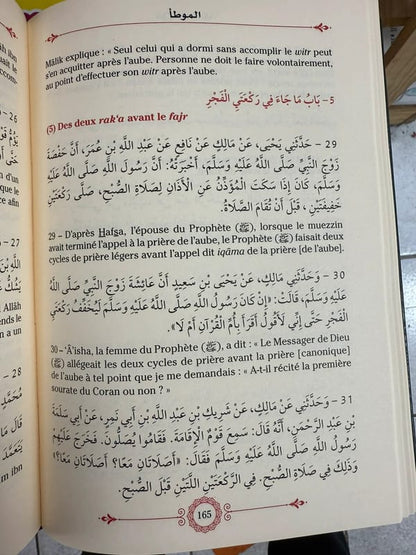 الموطأ
Mâlik explique : « Seul celui qui a dormi sans accomplir le witr peut
s'en acquitter après l'aube. Personne ne doit le faire volontairement,
au point d'effectuer son witr après l'aube.
5 – بَابُ مَا جَاءَ فِي رَكْعَتَيِ الْفَجْرِ
(5) Des deux rak'a avant le fajr
29 – حَدَّثَنِي يَحْيَى، عَنْ مَالِكٍ عَنْ نَافِعٍ عَنْ عَبْدِ اللَّهِ بْنِ عُمَرَ، أَنَّ حَفْصَةَ
زَوْجَ النَّبِيِّ صَلَّى اللَّهُ عَلَيْهِ وَسَلَّمَ، أَخْبَرَتْهُ: أَنَّ رَسُولَ اللَّهِ صَلَّى اللَّهُ عَلَيْهِ
وَسَلَّمَ، كَانَ إِذَا سَكَتَ الْمُؤَذِّنُ عَنِ الْأَذَانِ لِصَلَاةِ الصُّبْحِ، صَلَّى رَكْعَتَيْنِ
خَفِيفَتَيْنِ، قَبْلَ أَنْ تُقَامَ الصَّلَاةُ.
29 – D'après Hafsa, l'épouse du Prophète (ﷺ), lorsque le muezzin
avait terminé l'appel à la prière de l'aube, le Prophète (ﷺ) faisait deux
cycles de prière légers avant l'appel dit iqâma de la prière [de l'aube].
30 – وَحَدَّثَنِي مَالِكٌ، عَنْ يَحْيَى بْنِ سَعِيدٍ أَنَّ عَائِشَةَ زَوْجَ النَّبِيِّ صَلَّى اللَّهُ
عَلَيْهِ وَسَلَّمَ، قَالَتْ: «إِنْ كَانَ رَسُولُ اللَّهِ صَلَّى اللَّهُ عَلَيْهِ وَسَلَّمَ لَيُخَفِّفُ رَكْعَتَيِ
الْفَجْرِ حَتَّى إِنِّي لَأَقُولُ أَقَرَأَ بِأُمِّ الْقُرْآنِ أَمْ لَا».
30 – 'Â'isha, la femme du Prophète (ﷺ), a dit : « Le Messager de Dieu
(ﷺ) allégeait les deux cycles de prière avant la prière [canonique]
de l'aube à tel point que je me demandais : « A-t-il récité la première
sourate du Coran ou non ? »
31 – وَحَدَّثَنِي مَالِكٌ عَنْ، شَرِيكِ بْنِ عَبْدِ اللَّهِ بْنِ أَبِي نَمِرٍ، عَنْ أَبِي سَلَمَةَ
بْنِ عَبْدِ الرَّحْمَنِ، أَنَّهُ قَالَ: سَمِعَ قَوْمٌ الْإِقَامَةَ. فَقَامُوا يُصَلُّونَ. فَخَرَجَ عَلَيْهِمْ
رَسُولُ اللَّهِ صَلَّى اللَّهُ عَلَيْهِ وَسَلَّمَ فَقَالَ: «أَصَلَاتَانِ مَعًا؟ أَصَلَاتَانِ مَعًا؟
وَذَلِكَ فِي صَلَاةِ الصُّبْحِ. فِي الرَّكْعَتَيْنِ اللَّتَيْنِ قَبْلَ الصُّبْحِ.
165